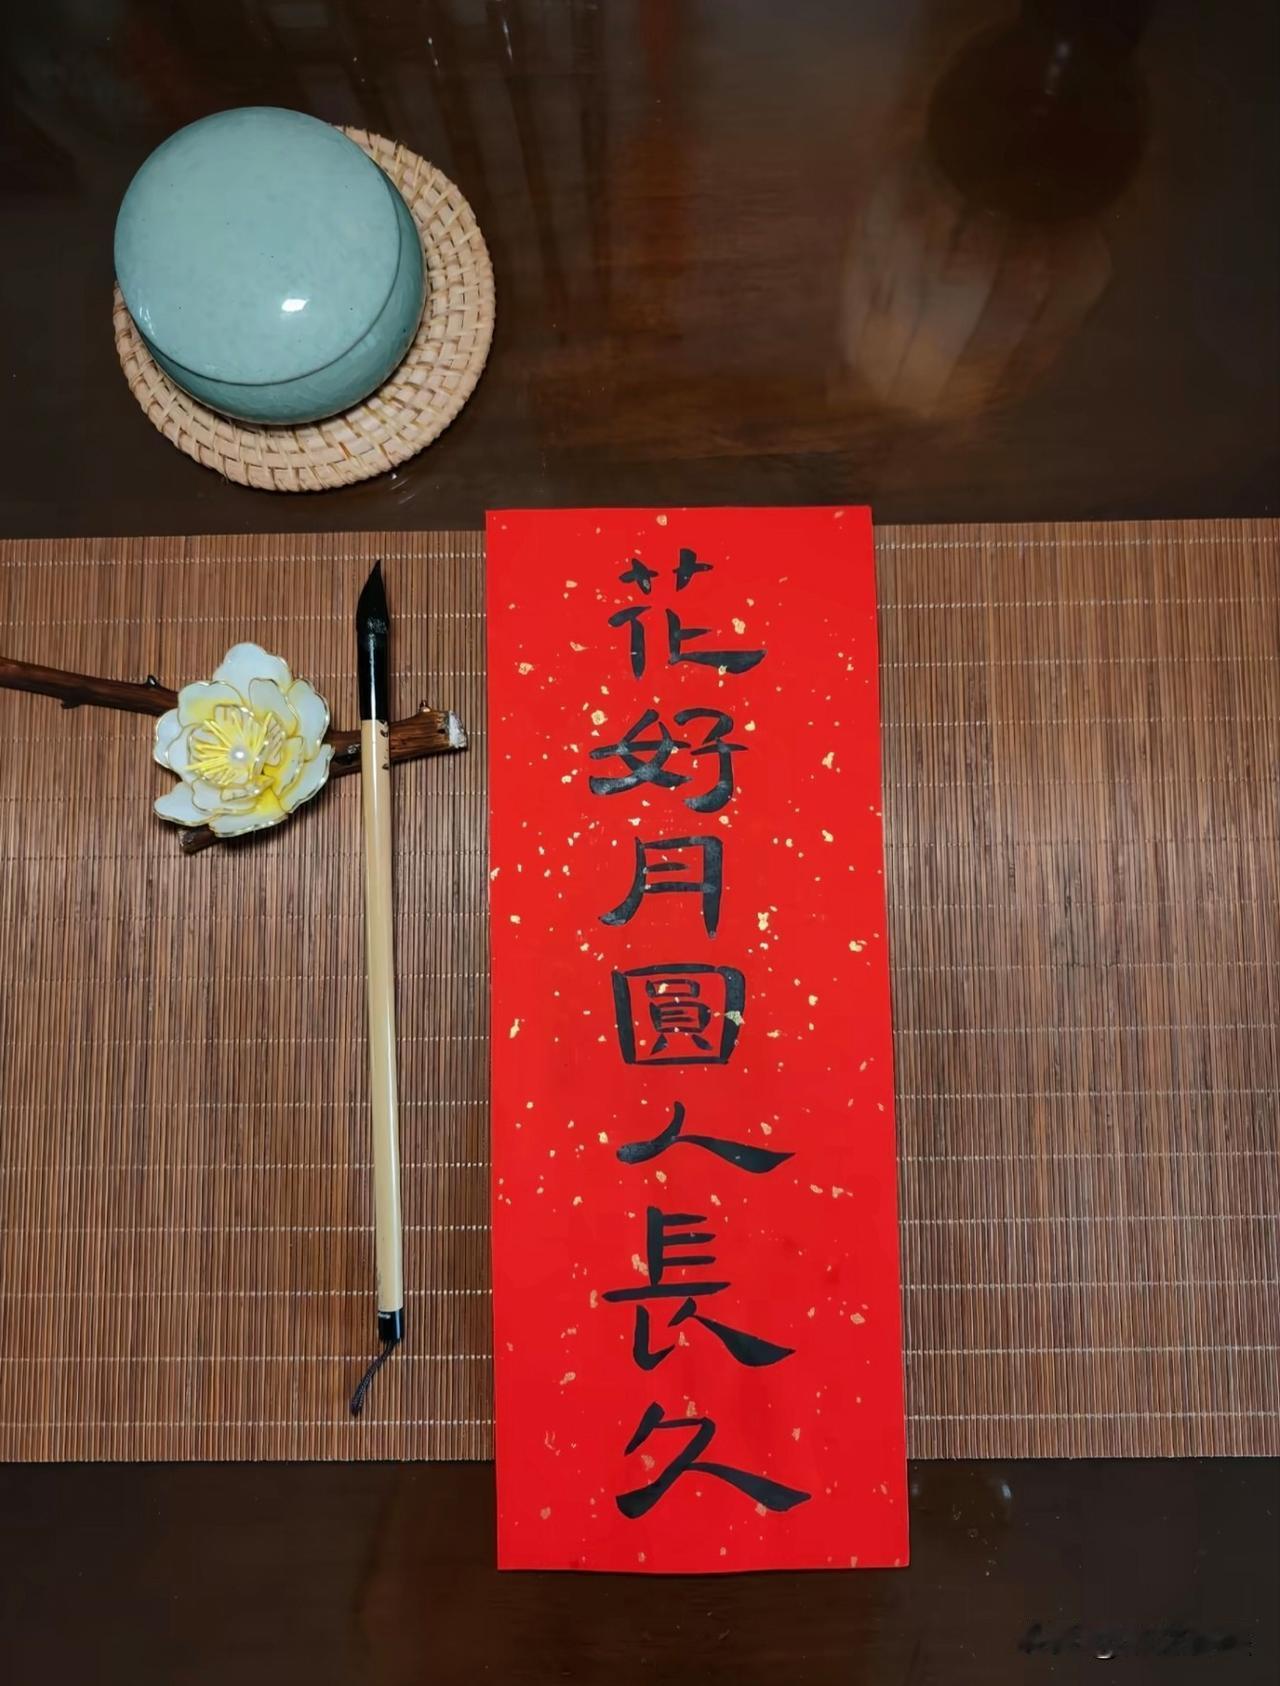 花好月圓人長久